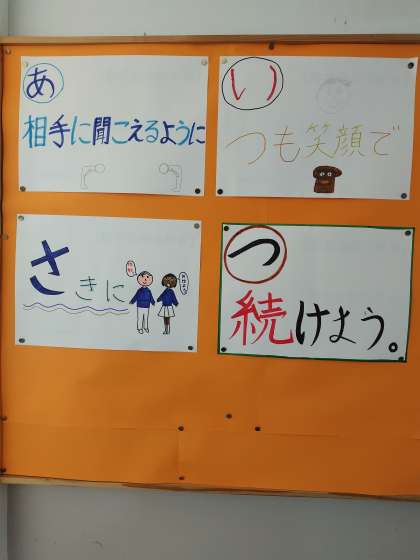 あ
相手に聞こえるように
い
つも笑顔で
さきに
つ
続けよう。